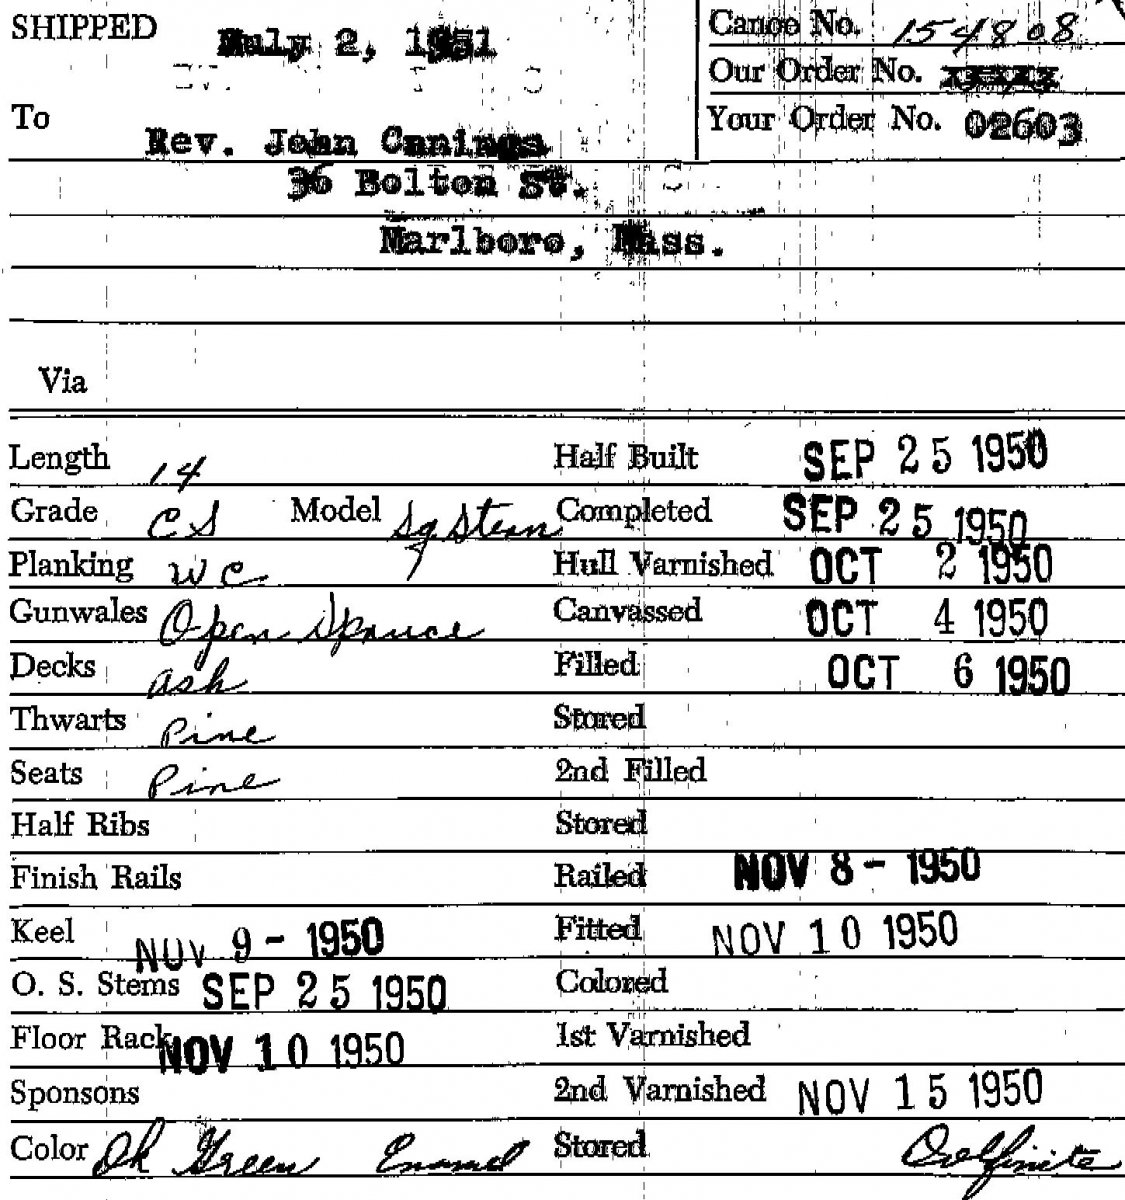 SHIPPED July 2, 1951 Canoe No. 154808
Our Order No.
To Your Order No. 02603
Rev. John
36 Bolton St.
Marlboro, Mass.
Via
Length 14 Half Built SEP 25 1950
Grade CS Model Sq. Stern Completed SEP 25 1950
Planking WC Hull Varnished OCT 2 1950
Gunwales Open Spruce Canvassed OCT 4 1950
Decks Ash Filled OCT 6 1950
Thwarts Pine Stored
Seats Pine 2nd Filled
Half Ribs Stored
Finish Rails Railed NOV 8 - 1950
Keel NOV 9 - 1950 Fitted NOV 10 1950
O. S. Stems SEP 25 1950 Colored
Floor Rack NOV 10 1950 1st Varnished
Sponsons 2nd Varnished NOV 15 1950
Color Dk Green Enamel Stored Dolfinite